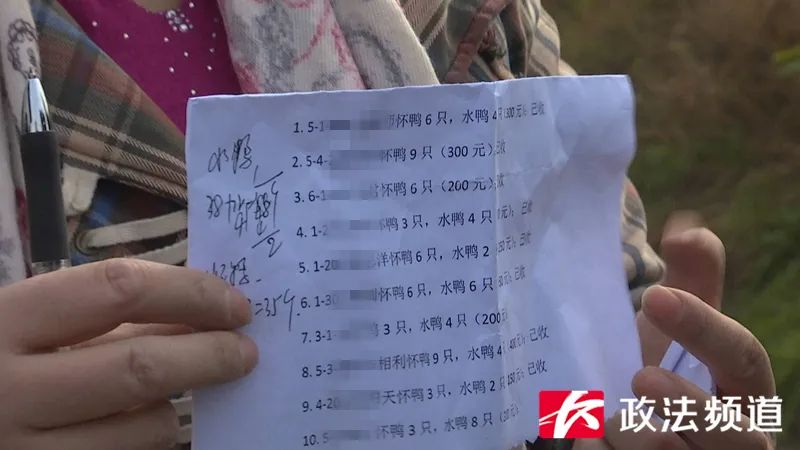 1. 5-1 怀鸭 6 只，水鸭 4只（300 元）；已收
2. 5-4- 怀鸭 9 只（300 元）；已收
3. 6-1 怀鸭 6 只（200 元）；已收
4. 1-2 怀鸭 3 只，水鸭 4 只 0元）；已收
5. 1-20 洋怀鸭 6 只，水鸭 2 250元）；已收
6. 1-30 怀鸭 6 只，水鸭 6 只 50元）；已收
7. 3-1 鸭 3 只，水鸭 4 只（200元
8. 5-3 相利怀鸭 9 只，水鸭 4只（400元）；已收
9. 4-20 天怀鸭 3 只，水鸭 2 只 150元）；已收
10. 5 怀鸭 3 只，水鸭 8 只（ 0元）；已收
水鸭
=35个
政法频道